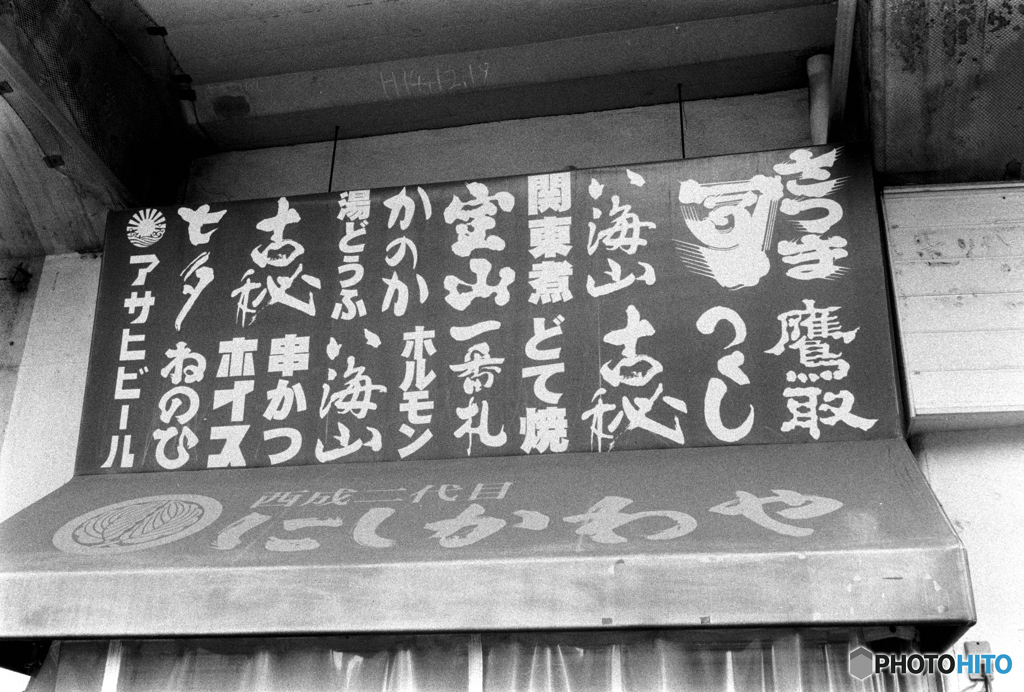 H14.12.19
さつま
鷹取
つくし
八海山
古秘
関東煮
どて焼
宝山
一番札
かのか
ホルモン
湯どうふ
八海山
古秘
串かつ
ホイス
七夕
ねのひ
アサヒビール
西成二代目
にしかわや
PHOTOHITO